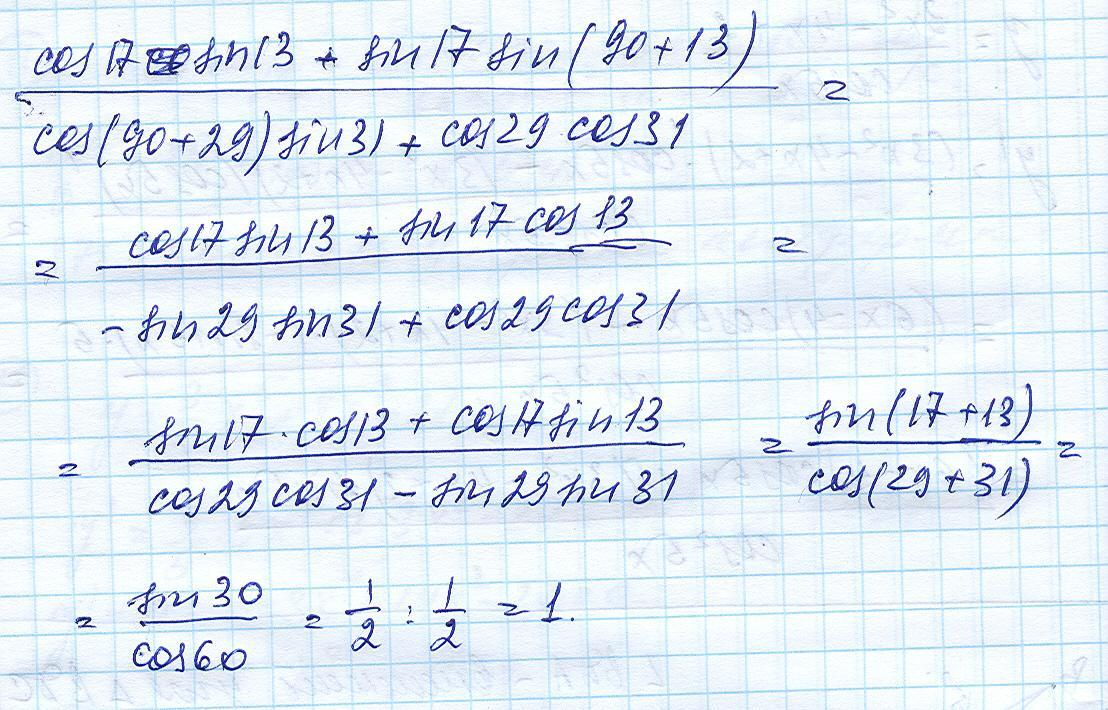 cos17 sin13 + sin17 sin(90+13)
cos(90+29) sin31 + cos29 cos31 =
= cos17 sin13 + sin17 cos13 =
- sin29 sin31 + cos29 cos31
= sin17 · cos13 + cos17 sin13 = sin(17+13) =
cos29 cos31 - sin29 sin31 cos(29+31)
= sin30 = 1/2 : 1/2 = 1.
cos60